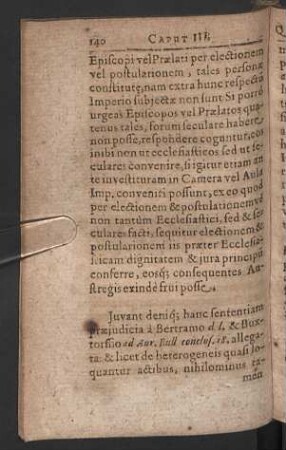 140 CAPUT III.
Episcopi vel Prælati per electionem
vel postulationem, tales personæ
constitutæ, nam extra hunc respectũ
Imperio subjectæ non sunt Si porrò
urgeas Episcopos vel Prælatos qua-
tenus tales, forum seculare habere
non posse, respondere cogũtur, eos
inibi non ut ecclesiasticos sed ut se-
culares convenire, si igitur etiam an-
te investituram in Camera vel Aula
Imp. conveniri possunt, ex eo quod
per electionem & postulationem vel
non tantùm Ecclesiastici, sed & se-
culares facti, sequitur electionem &
postulationem iis præter Ecclesia-
sticam dignitatem & jura principũ
conferre, eosq; consequentes Au-
stregis exindè frui posse.
Juvant deniq; hanc sententiam
præjudicia à Bertramo d. l. & Bux-
torffio ad Aur. Bull. conclus. allega-
ta: & licet de heterogeneis quasi lo-
quantur actibus, nihilominus ta-
men